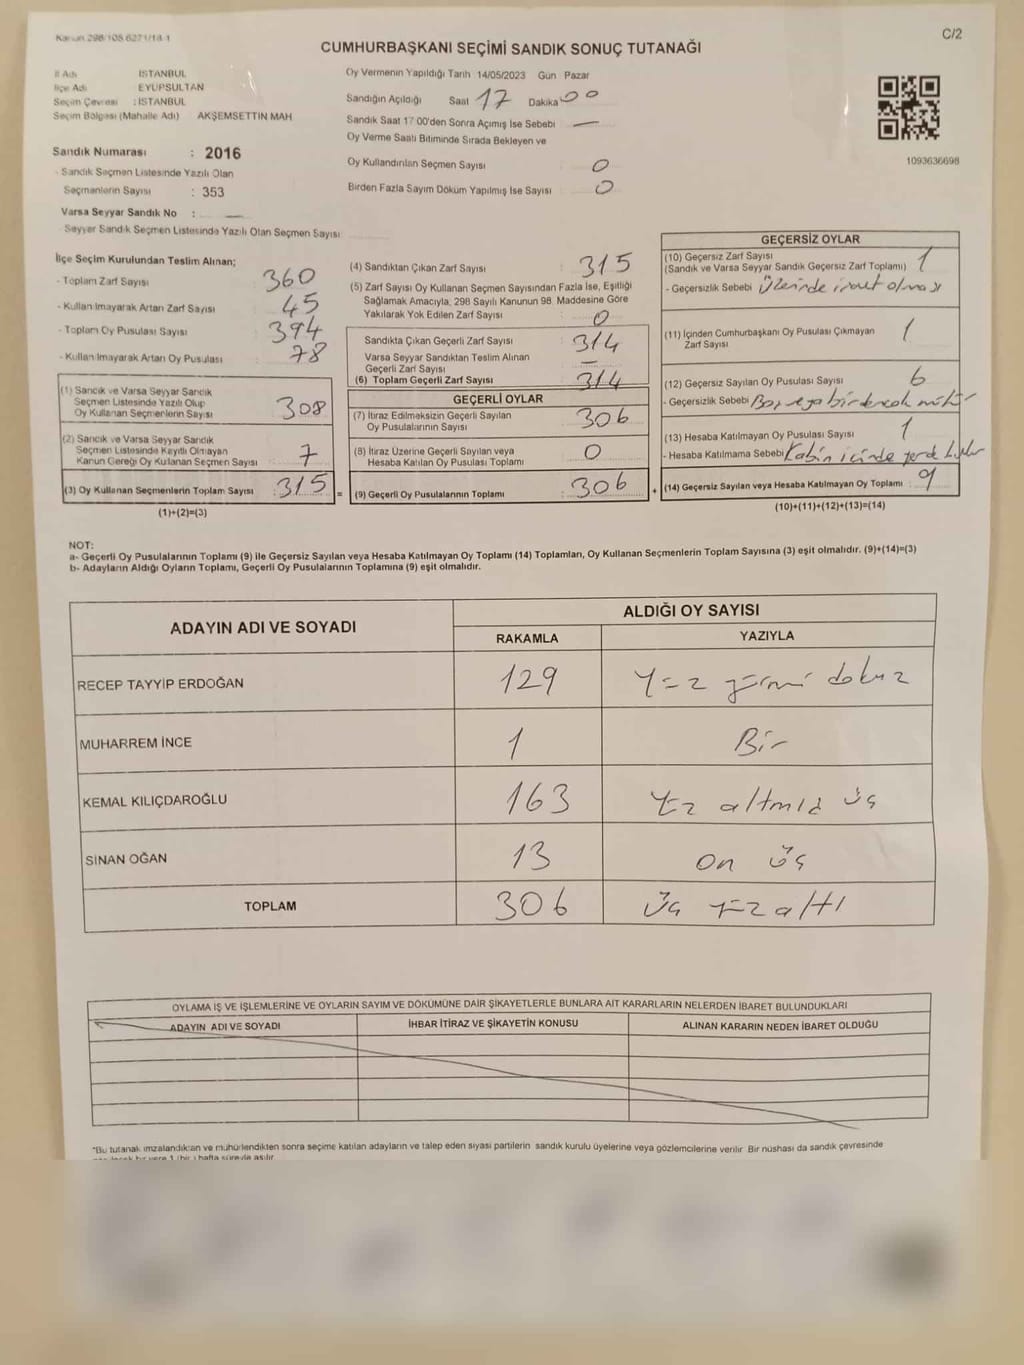 Kanun 298/105 6271/18-1
C/2
CUMHURBAŞKANI SEÇİMİ SANDIK SONUÇ TUTANAĞI
İl Adı İSTANBUL
İlçe Adı EYÜPSULTAN
Seçim Çevresi : İSTANBUL
Seçim Bölgesi (Mahalle Adı) AKŞEMSETTİN MAH
Sandık Numarası : 2016
- Sandık Seçmen Listesinde Yazılı Olan
Seçmenlerin Sayısı : 353
Varsa Seyyar Sandık No : —
- Seyyar Sandık Seçmen Listesinde Yazılı Olan Seçmen Sayısı
Oy Vermenin Yapıldığı Tarih 14/05/2023 Gün Pazar
Sandığın Açıldığı Saat 17 Dakika 00
Sandık Saat 17 00'den Sonra Açımış İse Sebebi —
Oy Verme Saati Bitiminde Sırada Bekleyen ve
Oy Kullandırılan Seçmen Sayısı 0
Birden Fazla Sayım Döküm Yapılmış İse Sayısı 0
1093636698
İlçe Seçim Kurulundan Teslim Alınan;
- Toplam Zarf Sayısı 360
- Kullanılmayarak Artan Zarf Sayısı 45
- Toplam Oy Pusulası Sayısı 394
- Kullanılmayarak Artan Oy Pusulası 78
(1) Sandık ve Varsa Seyyar Sandık
Seçmen Listesinde Yazılı Olup
Oy Kullanan Seçmenlerin Sayısı 308
(2) Sandık ve Varsa Seyyar Sandık
Seçmen Listesinde Kayıtlı Olmayan
Kanun Gereği Oy Kullanan Seçmen Sayısı 7
(3) Oy Kullanan Seçmenlerin Toplam Sayısı 315 =
(1)+(2)=(3)
(4) Sandıktan Çıkan Zarf Sayısı 315
(5) Zarf Sayısı Oy Kullanan Seçmen Sayısından Fazla İse, Eşitliği
Sağlamak Amacıyla, 298 Sayılı Kanunun 98. Maddesine Göre
Yakılarak Yok Edilen Zarf Sayısı 0
Sandıkta Çıkan Geçerli Zarf Sayısı 314
Varsa Seyyar Sandıktan Teslim Alınan
Geçerli Zarf Sayısı —
(6) Toplam Geçerli Zarf Sayısı 314
GEÇERLİ OYLAR
(7) İtiraz Edilmeksizin Geçerli Sayılan
Oy Pusulalarının Sayısı 306
(8) İtiraz Üzerine Geçerli Sayılan veya
Hesaba Katılan Oy Pusulası Toplamı 0
(9) Geçerli Oy Pusulalarının Toplamı 306 +
GEÇERSİZ OYLAR
(10) Geçersiz Zarf Sayısı
(Sandık ve Varsa Seyyar Sandık Geçersiz Zarf Toplamı) 1
- Geçersizlik Sebebi Üzerinde işaret olması
(11) İçinden Cumhurbaşkanı Oy Pusulası Çıkmayan
Zarf Sayısı 1
(12) Geçersiz Sayılan Oy Pusulası Sayısı 6
- Geçersizlik Sebebi Boş veya birden çok mühür
(13) Hesaba Katılmayan Oy Pusulası Sayısı 1
- Hesaba Katılmama Sebebi Kabin içinde yerde
(14) Geçersiz Sayılan veya Hesaba Katılmayan Oy Toplamı : 9
(10)+(11)+(12)+(13)=(14)
NOT:
a- Geçerli Oy Pusulalarının Toplamı (9) ile Geçersiz Sayılan veya Hesaba Katılmayan Oy Toplamı (14) Toplamları, Oy Kullanan Seçmenlerin Toplam Sayısına (3) eşit olmalıdır. (9)+(14)=(3)
b- Adayların Aldığı Oyların Toplamı, Geçerli Oy Pusulalarının Toplamına (9) eşit olmalıdır.
ADAYIN ADI VE SOYADI
ALDIĞI OY SAYISI
RAKAMLA YAZIYLA
RECEP TAYYİP ERDOĞAN 129 Yüz yirmi dokuz
MUHARREM İNCE 1 Bir
KEMAL KILIÇDAROĞLU 163 Yüz altmış üç
SİNAN OĞAN 13 on üç
TOPLAM 306 üç yüz altı
OYLAMA İŞ VE İŞLEMLERİNE VE OYLARIN SAYIM VE DÖKÜMÜNE DAİR ŞİKAYETLERLE BUNLARA AİT KARARLARIN NELERDEN İBARET BULUNDUKLARI
ADAYIN ADI VE SOYADI İHBAR İTİRAZ VE ŞİKAYETİN KONUSU ALINAN KARARIN NEDEN İBARET OLDUĞU
*Bu tutanak imzalandıktan ve mühürlendikten sonra seçime katılan adayların ve talep eden siyasi partilerin sandık kurulu üyelerine veya gözlemcilerine verilir Bir nüshası da sandık çevresinde
bir yere 1 (bir) hafta süreyle asılır